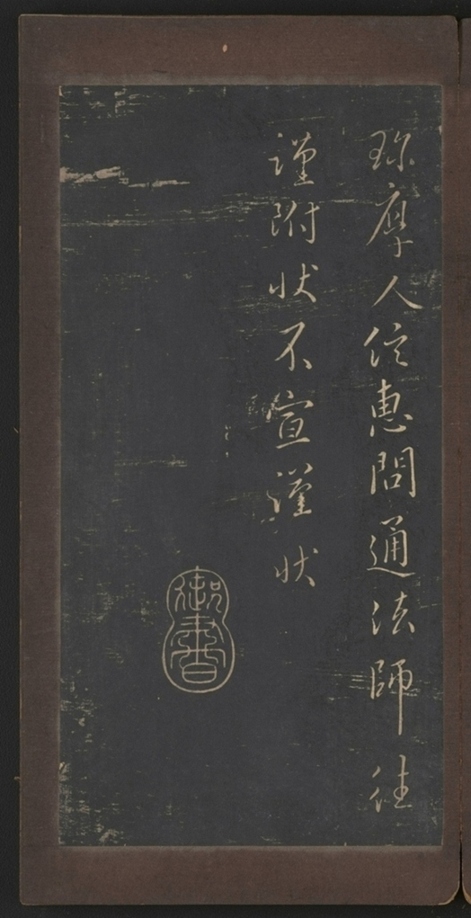 珎厚人信惠問通法師往
謹附状不宣謹状
御書